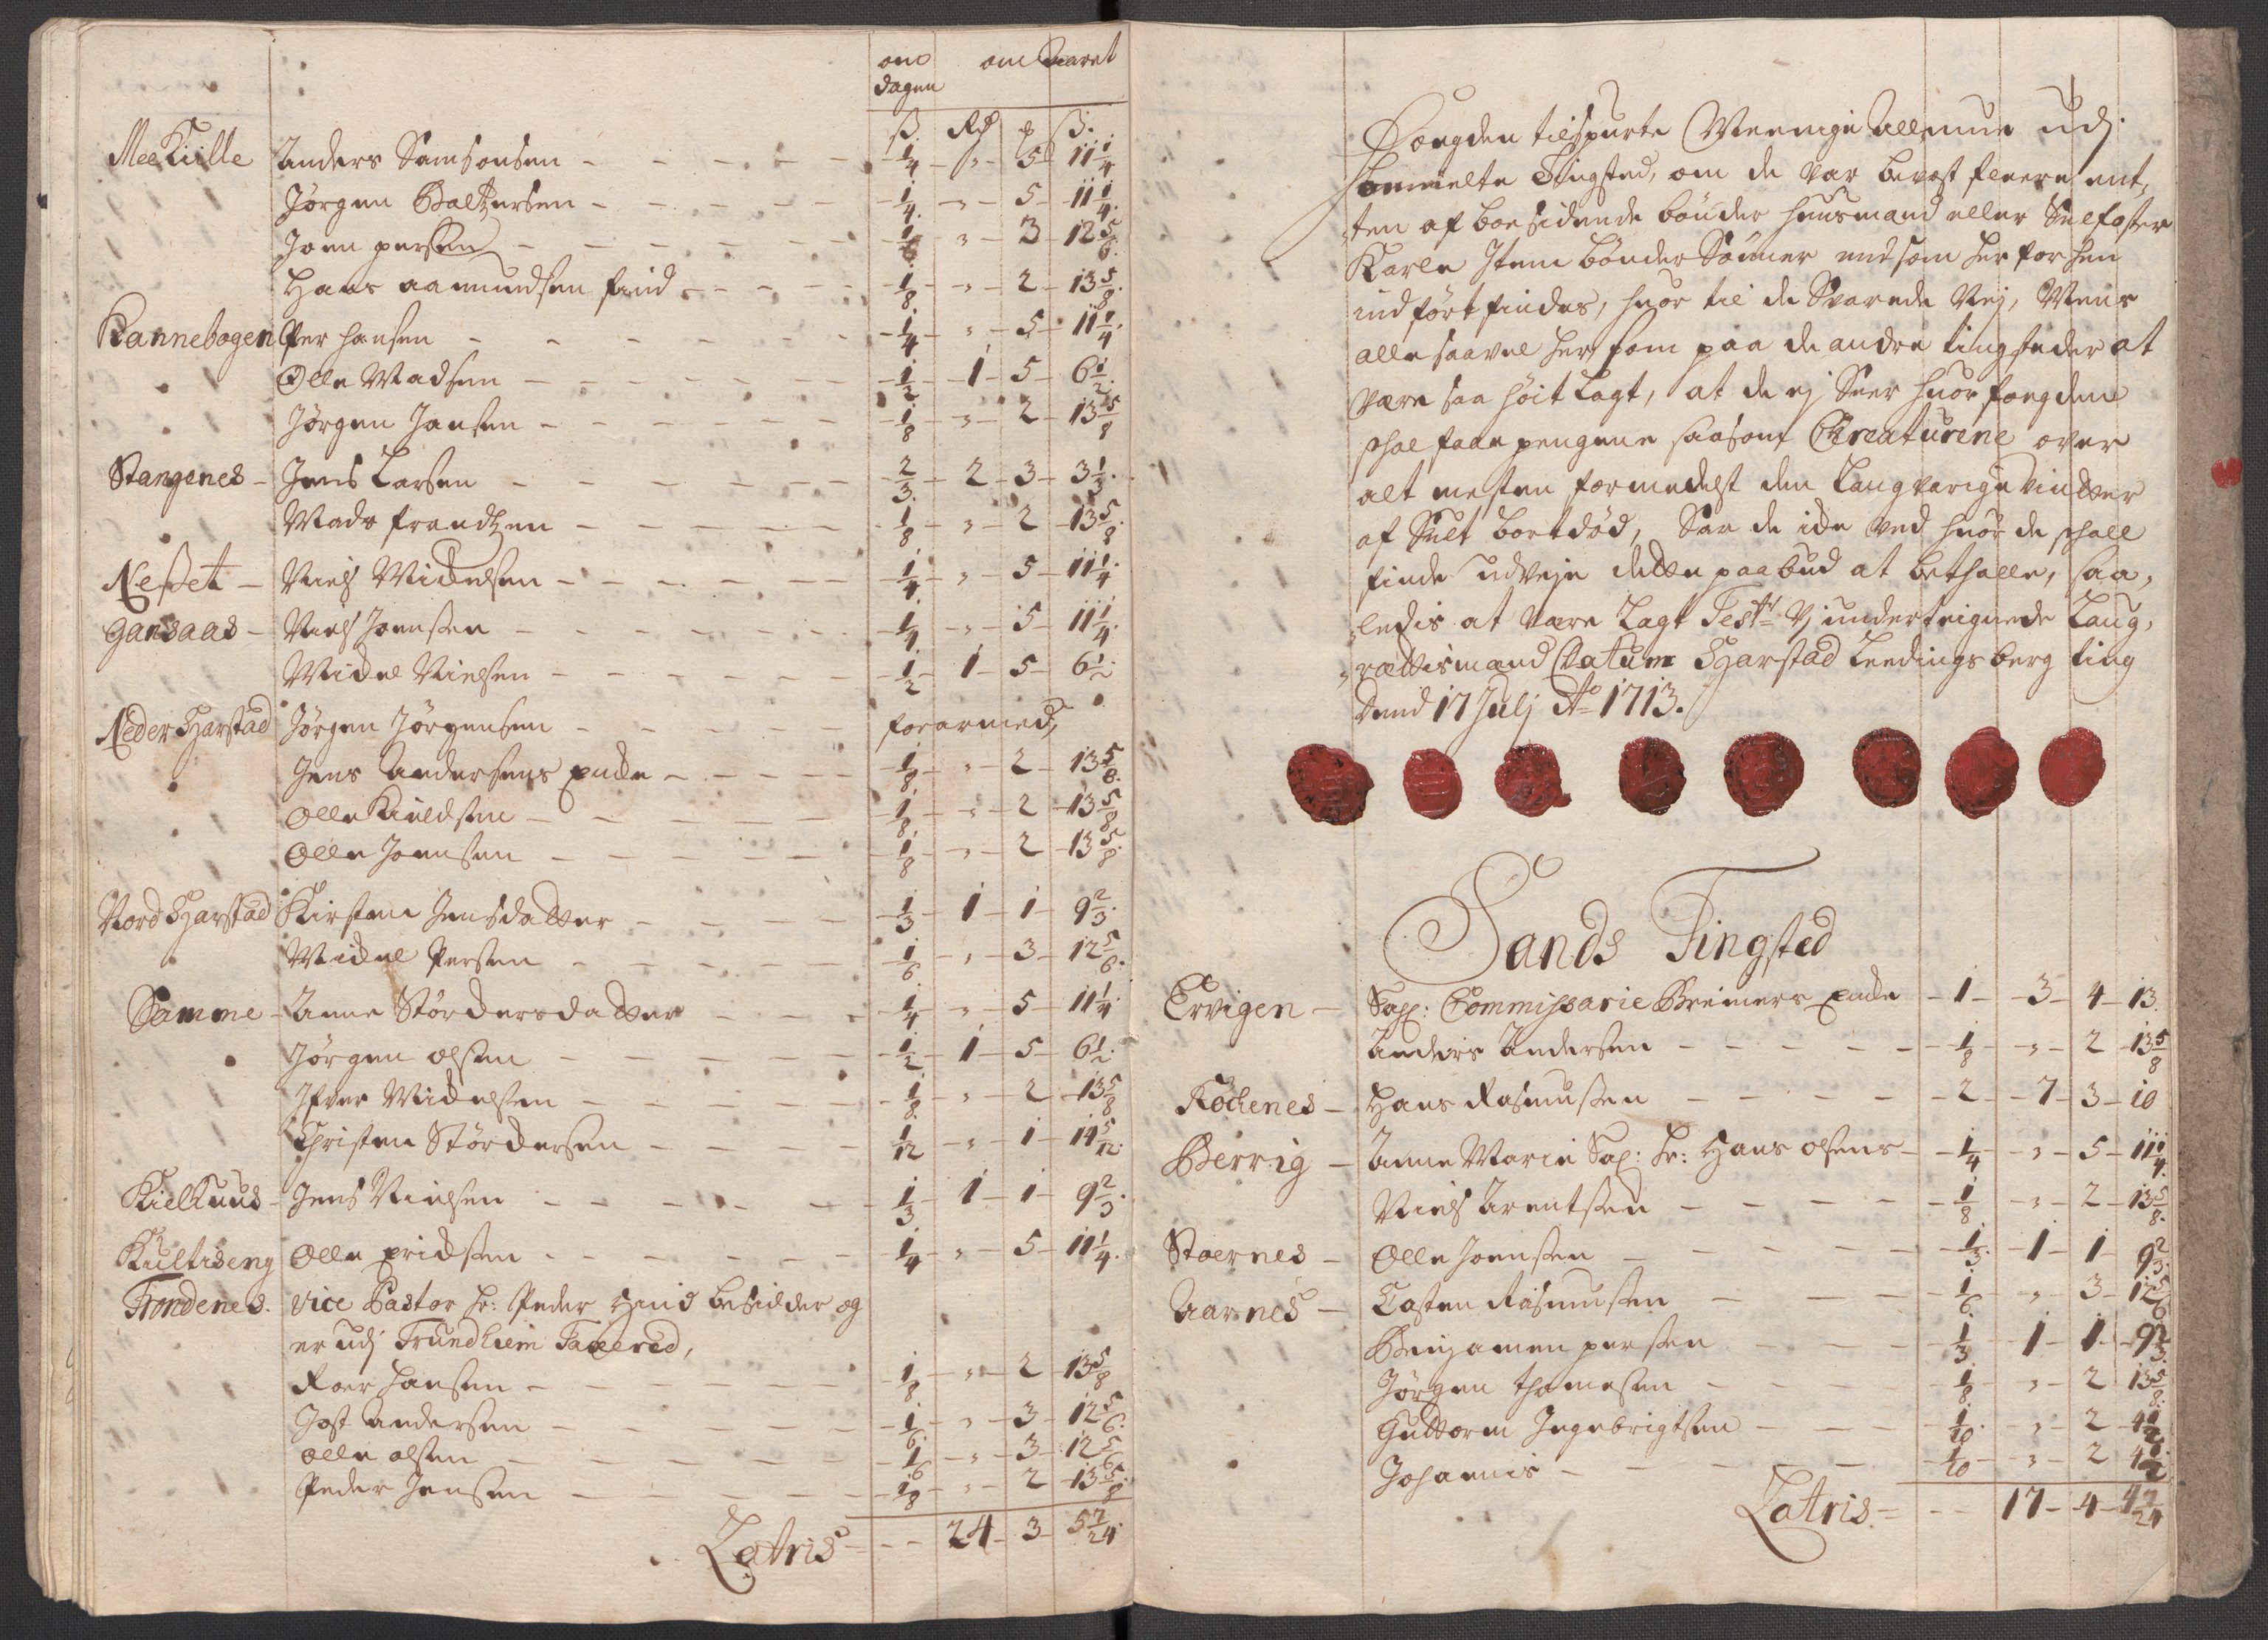 om dagen om Aaret
ß. Rd ꝑ ß.
MeeKiille Anders Samsonsen - - - 1/4 - " - 5 - 11 1/4
Jørgen Baltzersen - - - 1/4 - " - 5 - 11 1/4
Joen persen - - - 1/6 - " - 3 - 12 5/6
Hans aamundsen find - - - 1/8 - " - 2 - 13 5/8
Kannebogen Per hansen - - - 1/4 - " - 5 - 11 1/4
Olle Madsen - - - 1/2 - 1 - 5 - 6 1/2
Jørgen Jansen - - - 1/8 - " - 2 - 13 5/8
Stangenes - Jens Larsen - - - 2/3 - 2 - 3 - 3 1/3
Mads frandtzen - - - 1/8 - " - 2 - 13 5/8
Neßet - Niels Michelsen - - - 1/4 - " - 5 - 11 1/4
Gansaas - Niels Joensen - - - 1/4 - " - 5 - 11 1/4
Michel Nielsen - - - 1/2 - 1 - 5 - 6 1/2
Neder Harstad Jørgen Jørgensen - - - forarmed,
Jens Andersens Encke - - - 1/8 - " - 2 - 13 5/8
Olle Kieldsen - - - 1/8 - " - 2 - 13 5/8
Olle Joensen - - - 1/8 - " - 2 - 13 5/8
Nord Harstad Kirsten Jensdatter - - - 1/3 - 1 - 1 - 9 2/3
Michel Persen - - - 1/6 - " - 3 - 12 5/6
Samme - Anne Størckersdatter - - - 1/4 - " - 5 - 11 1/4
Jørgen olsen - - - 1/2 - 1 - 5 - 6 1/2
Ifver Michelsen - - - 1/8 - " - 2 - 13 5/8
Christen Størckersen - - - 1/12 - " - 1 - 14 5/12
KielKuus - Jens Nielsen - - - 1/3 - 1 - 1 - 9 2/3
Kultiseng Olle Eridsen - - - 1/4 - " - 5 - 11 1/4
Trondenes. Vice Pastor hr: Peder Hind besidder og
er udj Trundhiem Taxered,
Roer hansen - - - 1/8 - " - 2 - 13 5/8
Jost Andersen - - - 1/6 - " - 3 - 12 5/6
olle olsen - - - 1/6 - " - 3 - 12 5/6
Peder Jensen - - - 1/8 - " - 2 - 13 5/8
Latris - - - 24 - 3 - 5 7/24
Foegden tilspurte Meenige Allmue udj
bemelte Tingsted, om de var bevost fleere ent,
ten af boesidende bönder huusmænd eller Selfoster
Karle Item bönder Sönner end som her for hen
indført findes, huor til de Svarede Nej, Mens
alle saavel her som paa de andre tingsteder at
være saa höit Lagt, at de ej Seer huor foegden
schal faae pengene saasom Creaturene over
alt mesten formedelst den Langvarige vinter
af Sult bortdöd, Saa de icke ved huor de schall
finde udveje dette paabud at bethalle, saa,
ledis at være Lagt Test: Vj underteignede Laug,
rættismænd Datum Harstad Leedingsberg ting
Dend 17 Julj Ao 1713.
Sands Tingsted
Ervigen - Sal: Commissarie Breiners Encke - 1 - 3 - 4 - 13
Anders Andersen - - - 1/8 - " - 2 - 13 5/8
Röchenes - Hans Rasmussen - - - 2 - 7 - 3 - 10
Berrig - Anne Marie Sal: hr: Hans olsens - 1/4 - " - 5 - 11 1/4
Niels Arentsen - - - 1/8 - " - 2 - 13 5/8
Stoernes - Olle Joensen - - - 1/3 - 1 - 1 - 9 2/3
Aarnes - Casten Rasmussen - - - 1/6 - " - 3 - 12 5/6
Benjamen persen - - - 1/3 - 1 - 1 - 9 2/3
Jörgen thomesen - - - 1/8 - " - 2 - 13 5/8
Guttorm Ingebrigtsen - - - 1/10 - " - 2 - 4 1/2
Johannis - - - 1/10 - " - 2 - 4 1/2
Latris - - - 17 - 4 - 4 7/24